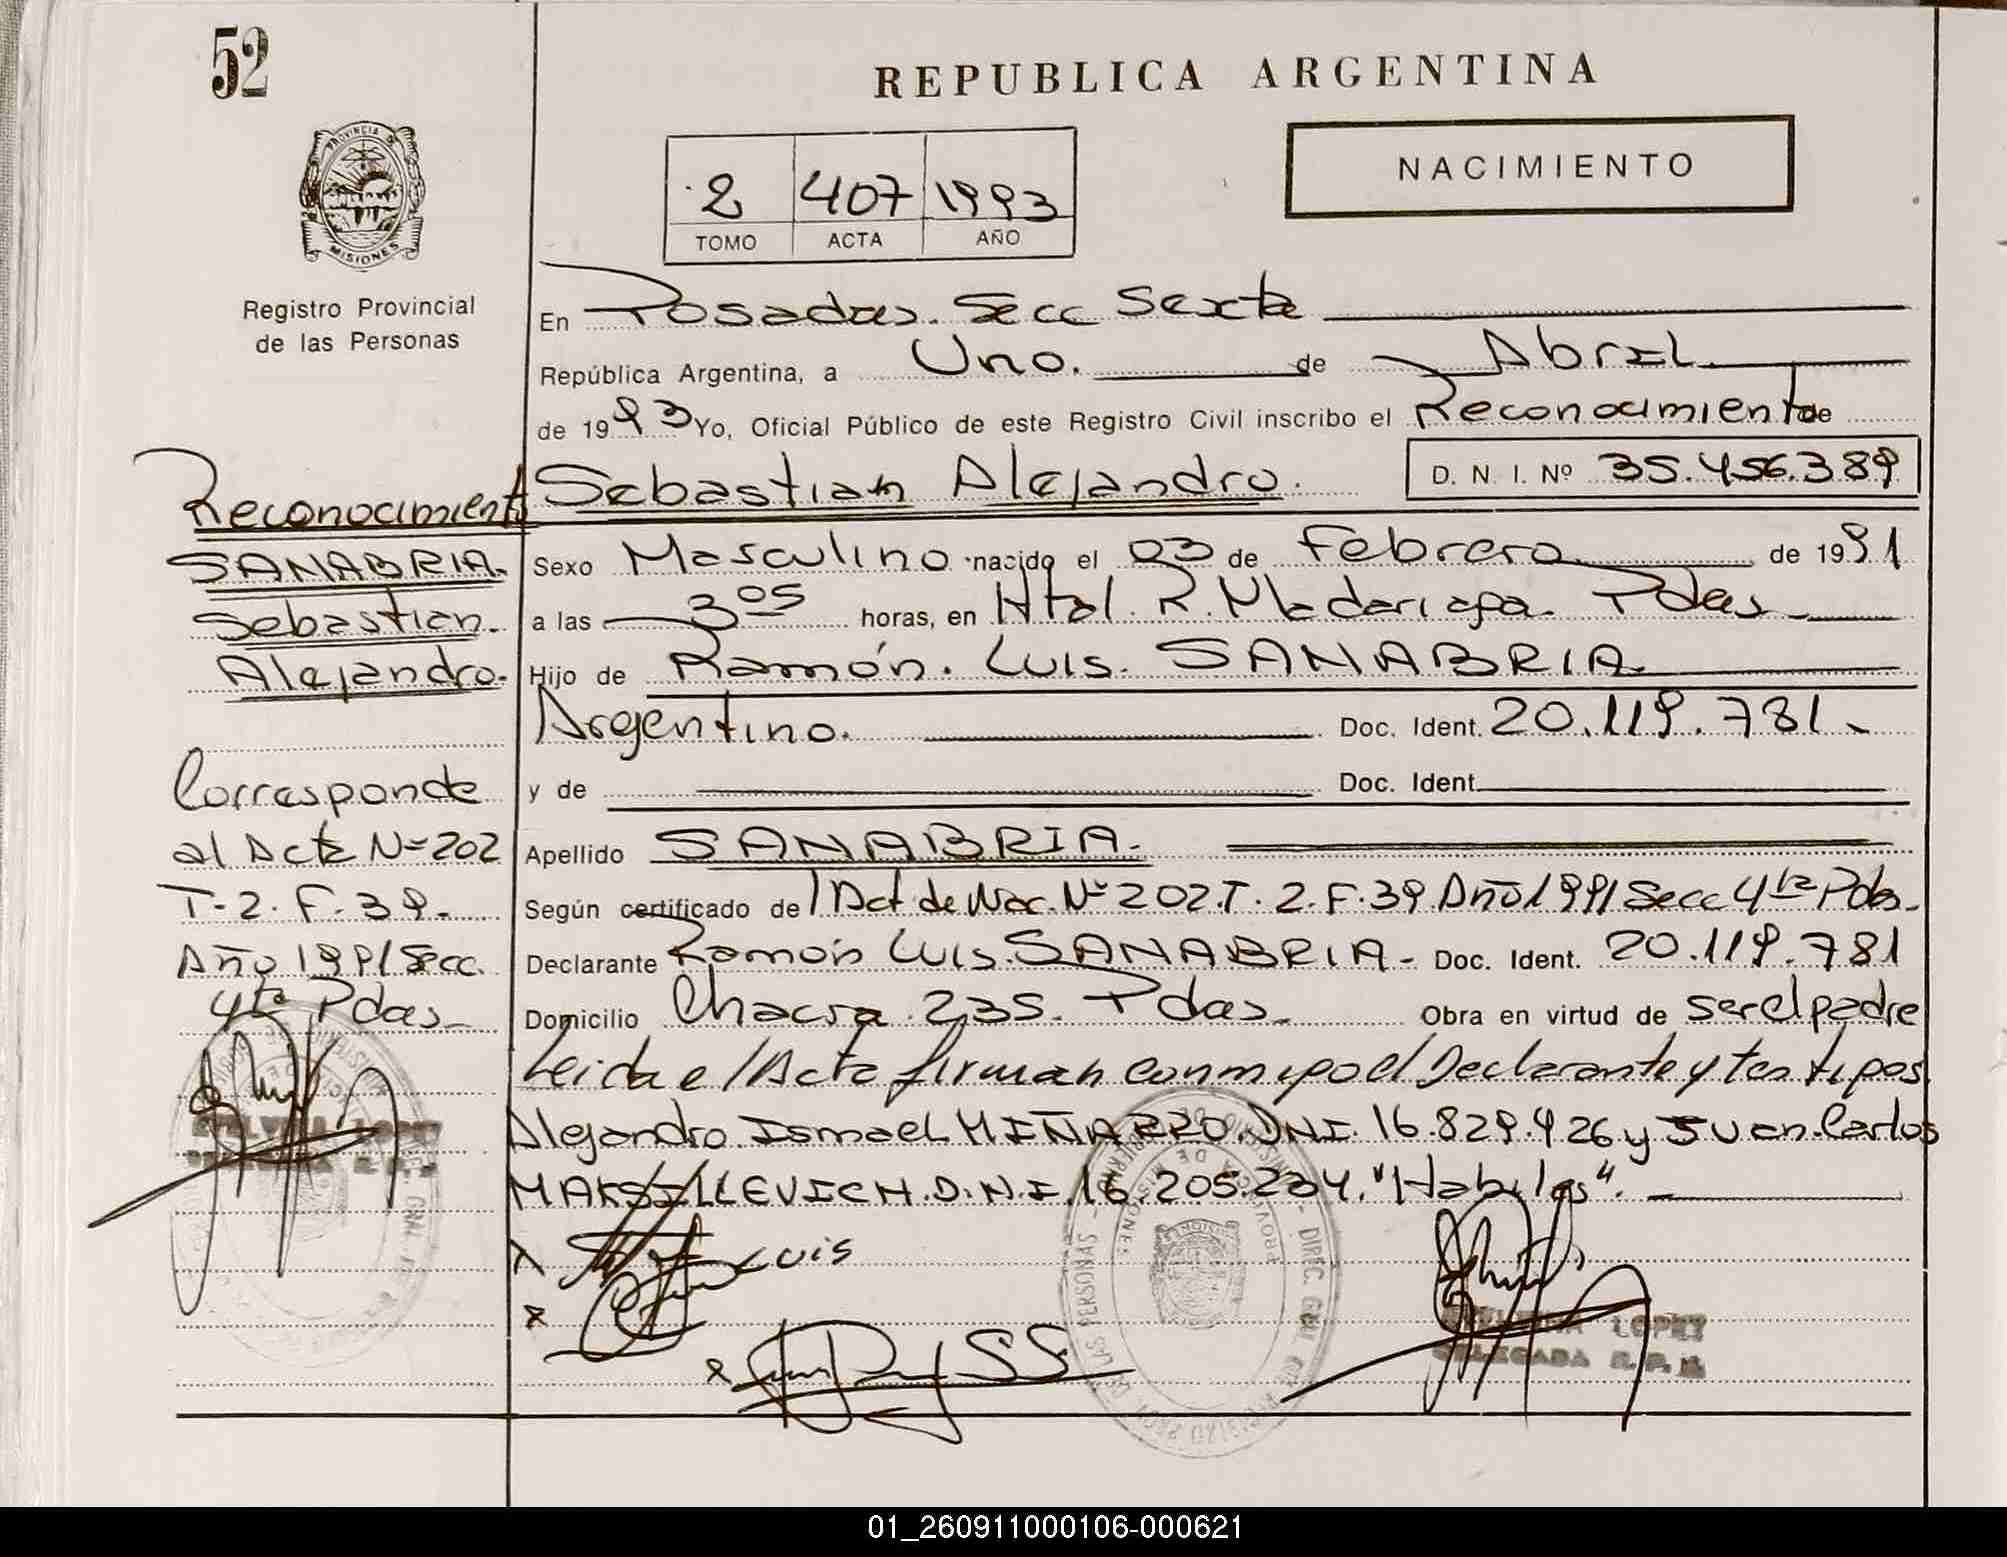 52
REPUBLICA ARGENTINA
NACIMIENTO
2 407 1993
TOMO ACTA AÑO
PROVINCIA DE
MISIONES
Registro Provincial
de las Personas
En Posadas. Secc Sexta
República Argentina, a Uno. de Abril
de 1993 Yo, Oficial Público de este Registro Civil inscribo el Reconocimiento de
Sebastian Alejandro. D. N. I. Nº 35.456.389
Reconocimiento
SANABRIA.
Sebastian.
Alejandro.
Sexo Masculino nacido el 03 de Febrero de 1991
a las 3 05 horas, en Htal. R. Madariaga. Pdas
Hijo de Ramón. Luis. SANABRIA.
Argentino. Doc. Ident. 20.119.781.
y de Doc. Ident.
Corresponde
al Acta Nº 202
T-2. F. 39.
Año 1991 Secc.
4ta Pdas
Apellido SANABRIA.
Según certificado del Act de Nac. Nº 202.T. 2. F. 39 Año 1991 Secc 4ta Pdas.
Declarante Ramón Luis. SANABRIA. Doc. Ident. 20.119.781
Domicilio Chacra 235. Pdas. Obra en virtud de ser el padre
Leida el Acta firman conmigo el Declarante y testigos
Alejandro Ismael MIÑARRO. DNI. 16.829.426 y Juan Carlos
MAKSILLEVICH. D.N.I. 16.205.234. "Habiles".
Luis
LOPEZ
DELEGADA R. P. P.
01_260911000106-000621